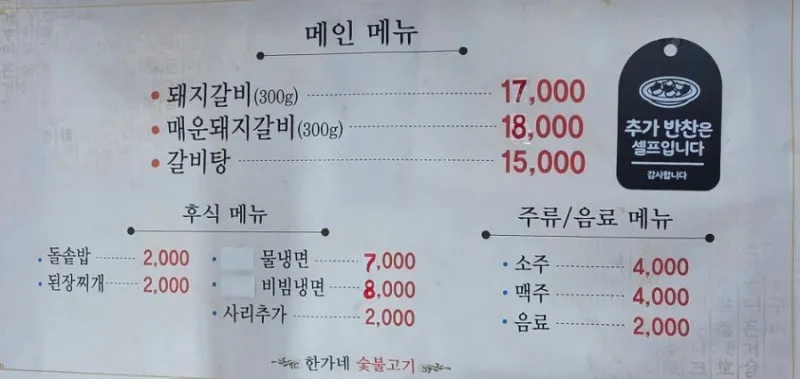 메인 메뉴
돼지갈비(300g) 17,000
매운돼지갈비(300g) 18,000
갈비탕 15,000
추가 반찬은
셀프입니다
감사합니다
후식 메뉴
돌솥밥 2,000
된장찌개 2,000
물냉면 7,000
비빔냉면 8,000
사리추가 2,000
주류/음료 메뉴
소주 4,000
맥주 4,000
음료 2,000
한가네 숯불고기